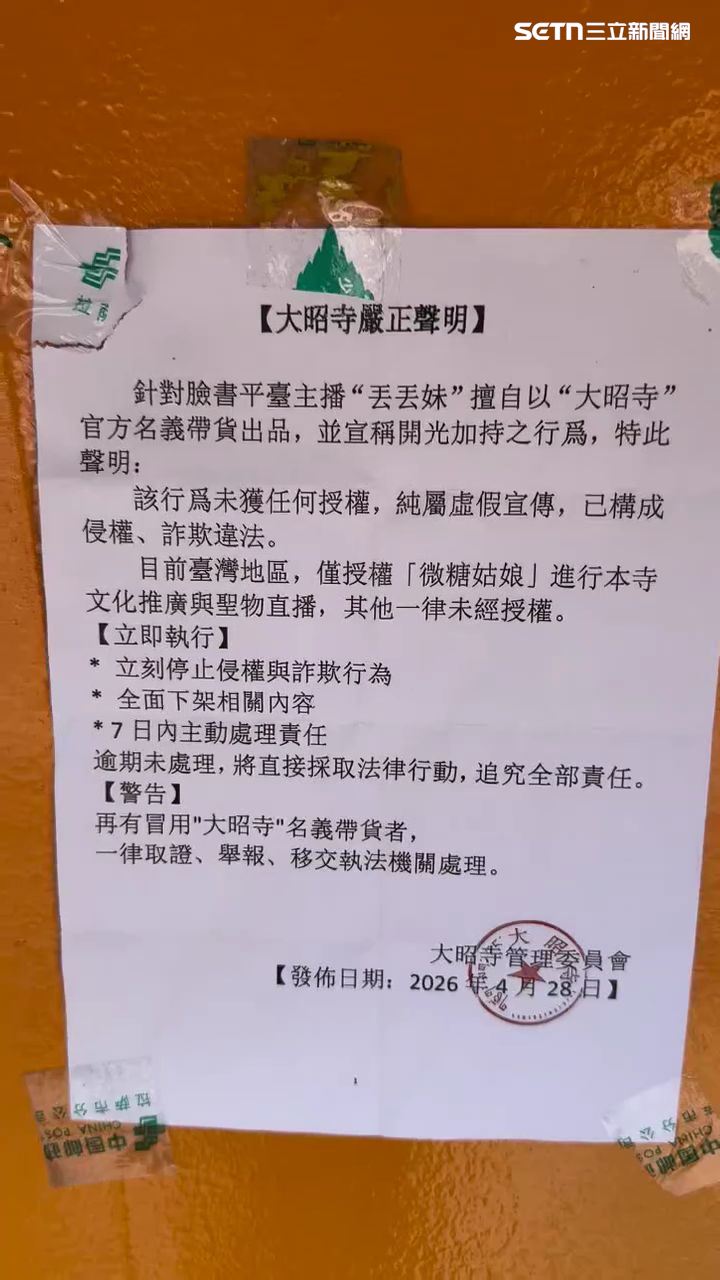 SETN三立新聞網
拉
【大昭寺嚴正聲明】
針對臉書平臺主播“丟丟妹”擅自以“大昭寺”
官方名義帶貨出品，並宣稱開光加持之行爲，特此
聲明：
該行爲未獲任何授權，純屬虛假宣傳，已構成
侵權、詐欺違法。
目前臺灣地區，僅授權「微糖姑娘」進行本寺
文化推廣與聖物直播，其他一律未經授權。
【立即執行】
* 立刻停止侵權與詐欺行為
* 全面下架相關內容
*7 日內主動處理責任
逾期未處理，將直接採取法律行動，追究全部責任。
【警告】
再有冒用"大昭寺"名義帶貨者，
一律取證、舉報、移交執法機關處理。
大昭寺管理委員會
【發佈日期：2026 年 4 月 28 日】
大昭
1
拉萨市分公司
CHINA POS
中国邮政
市分公司
CHINA POS
中国邮政